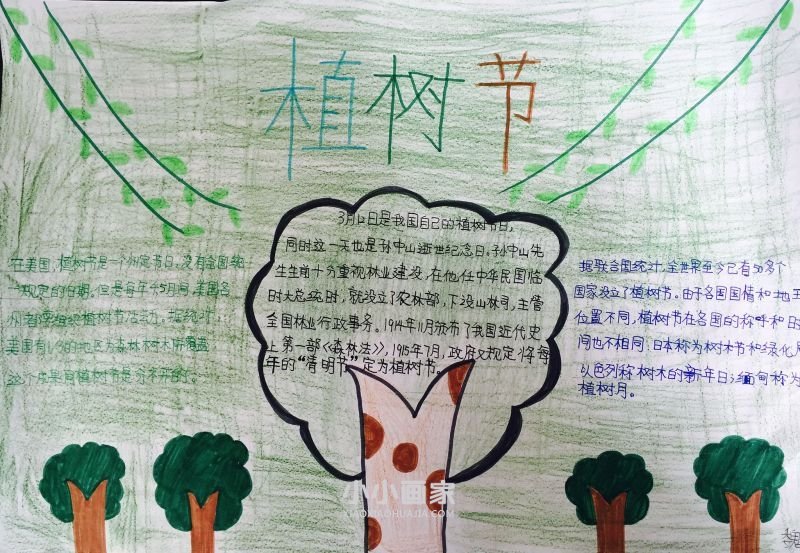 植树节
3月12日是我国自己的植树节日,
同时这一天也是孙中山逝世纪念日。孙中山先
生生前十分重视林业建设,在他任中华民国临
时大总统时,就设立了农林部,下设山林司,主管
全国林业行政事务。1914年11月颁布了我国近代史
上第一部《森林法》,1915年7月,政府又规定将每
年的“清明节”定为植树节。
在美国,植树节是一个州定节日,没有全国统
一规定的日期。但是每年4 5月间,美国各
州都 组织植树节活动。
美国有1/3的地区为森林树木所覆盖
这个成果同植树节是分不开的。
据联合国统计,全世界至今已有50多个
国家设立了植树节。由于各国国情和地
位置不同,植树节在各国的称呼和日
间也不相同:日本称为树木节和绿化
以色列称树木的新年日;缅甸称为
植树月。
小小画家
XIAOXIAOHUAJIA.COM